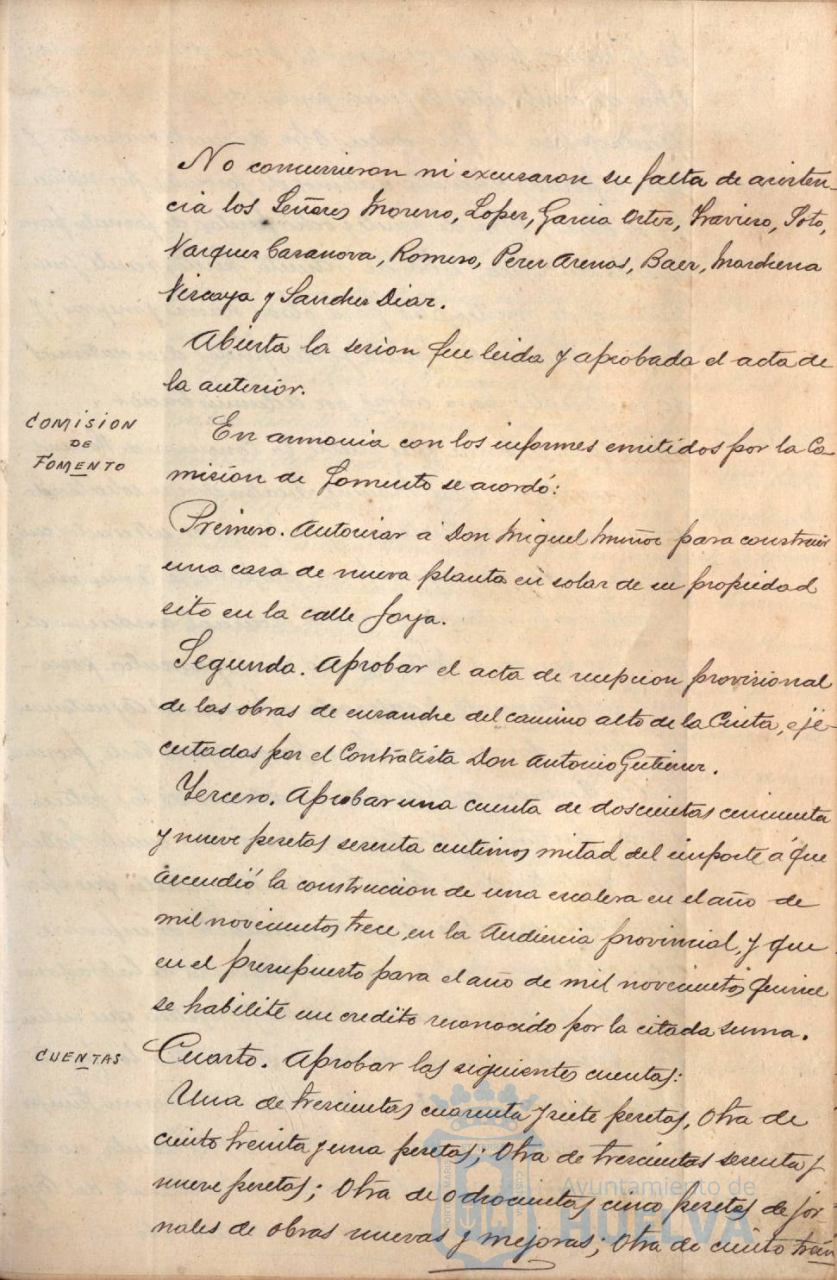 No concurrieron ni excusaron su falta de asisten-
cia los Señores Moreno, Lopez, Garcia Ortiz, Travieso, Soto,
Vazquez Casanova, Romero, Perez Arenas, Baez, Marchena
Vizcaya y Sanchez Diaz.
Abierta la sesion fue leida y aprobada el acta de
la anterior.
COMISION
DE
FOMENTO
En armonia con los informes emitidos por la Co
mision de Fomento se acordó:
Primero. Autorizar á Don Miguel Muñoz para construir
una casa de nueva planta en solar de su propiedad
sito en la calle Joya.
Segundo. Aprobar el acta de recepcion provisional
de las obras de ensanche del camino alto de la Cinta, eje-
cutadas por el Contratista Don Antonio Gutierrez.
Tercero. Aprobar una cuenta de doscientas cincuenta
y nueve pesetas sesenta centimos mitad del importe á que
ascendió la construccion de una escalera en el año de
mil novecientos trece, en la Audiencia provincial, y que
en el presupuesto para el año de mil novecientos quince
se habilite un credito reconocido por la citada suma.
CUENTAS
Cuarto. Aprobar las siguientes cuentas:
Una de trescientas cuarenta y siete pesetas, Otra de
ciento treinta y una pesetas; Otra de trescientas sesenta y
nueve pesetas; Otra de ochocientas cinco pesetas de jor
nales de obras nuevas y mejoras; Otra de ciento trein
Ayuntamiento de
HUELVA